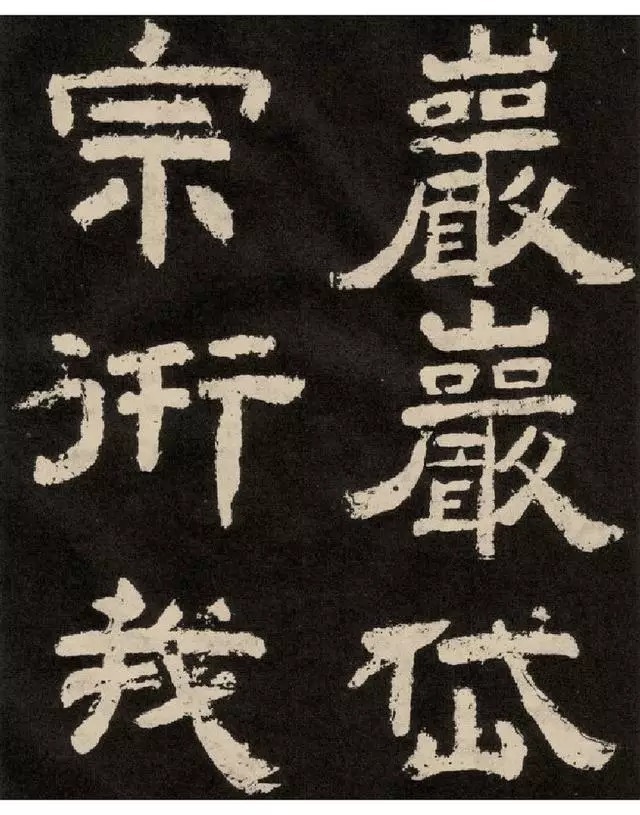 巖巖岱
宗衎我